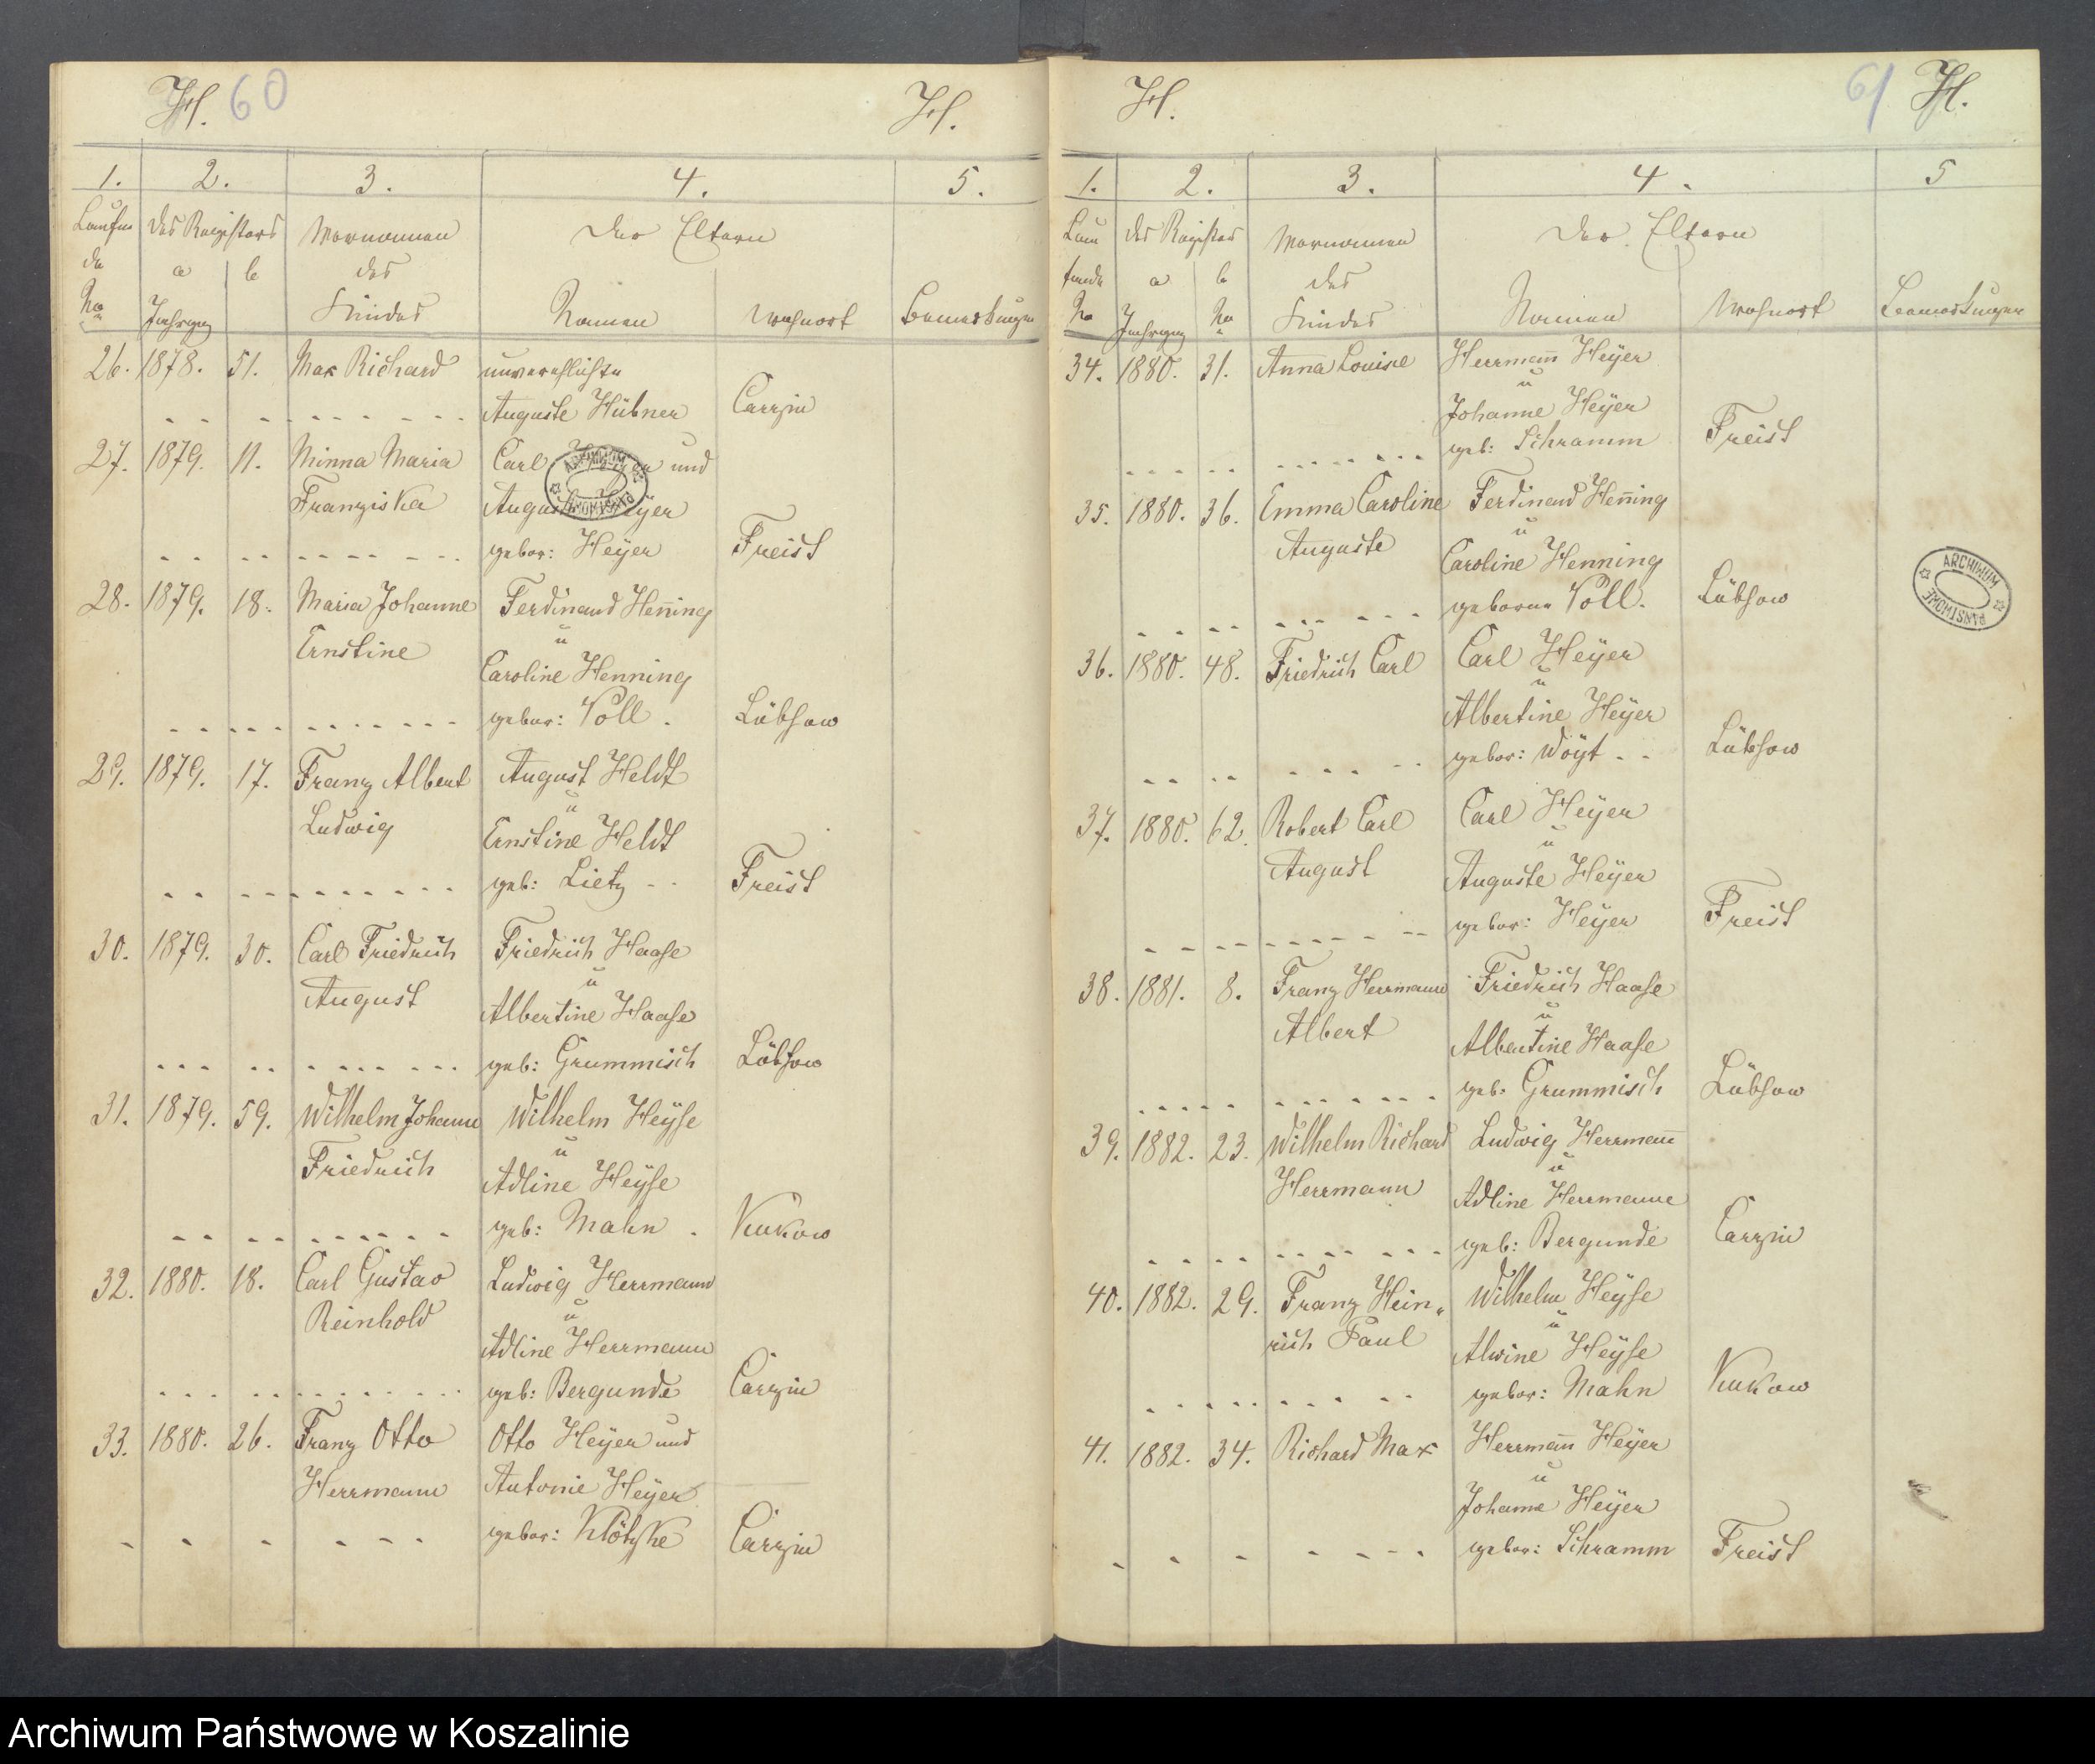 H. 60 H.
1. 2. 3. 4. 5.
Laufen des Registers Vornamen Der Eltern
de a b des
No Jahrgang Kindes Namen Wohnort Bemerkungen
26. 1878. 51. Max Richard unverehlichte
Auguste Hübner Carzin
27. 1879. 11. Minna Maria Carl Heyer und
Franziska Auguste Heyer
gebor: Heÿer Freist
28. 1879. 18. Maria Johanne Ferdinand Hen̅ing
u
Ernstine Caroline Henning
gebor: Voll. Lübsow
29. 1879. 17. Franz Albert August Heldt
u
Ludwig Ernstine Heldt
geb: Lietz Freist
30. 1879. 30. Carl Friedrich Friedrich Haase
u
August Albertine Haase
geb: Grummisch Lübsow
31. 1879. 59. Wilhelm Johann Wilhelm Heÿse
u
Friedrich Adline Heÿse
geb: Mahn. Kukow
32. 1880. 18. Carl Gustav Ludwig Herrmann
u
Reinhold Adline Herrmann
geb: Bergunde Carzin
33. 1880. 26. Franz Otto Otto Heÿer und
Herrmann Antonie Heÿer
gebor: Klötzke Carzin
H. 61 H.
1. 2. 3. 4. 5
Lau des Registers Vornamen Der Eltern
fende a b des
No Jahrgang No Kindes Namen Wohnort Bemerkungen
34. 1880. 31. Anna Louise Herrman̅ Heÿer
u
Johanne Heÿer
geb: Schramm Freist
35. 1880. 36. Emma Caroline Ferdinand Hen̅ing
u
Auguste Caroline Henning
geborne Voll. Lübsow
36. 1880. 48. Friedrich Carl Carl Heÿer
u
Albertine Heÿer
gebor: Woÿt Lübsow
37. 1880. 62. Robert Carl Carl Heÿer
u
August Auguste Heÿer
gebor: Heÿer Freist
38. 1881. 8. Franz Herrmann Friedrich Haase
u
Albert Albertine Haase
geb: Grummisch Lübsow
39. 1882. 23. Wilhelm Richard Ludwig Herrman̅
u
Herrmann Adline Herrmann
geb: Bergunde Carzin
40. 1882. 29. Franz Hein„ Wilhelm Heÿse
u
rich Paul Alwine Heÿse
gebor: Mahn Kukow
41. 1882. 34. Richard Max Herrman̅ Heÿer
u
Johanne Heÿer
gebor: Schramm Freist
ARCHIWUM PAŃSTWOWE
ARCHIWUM PAŃSTWOWE
Archiwum Państwowe w Koszalinie